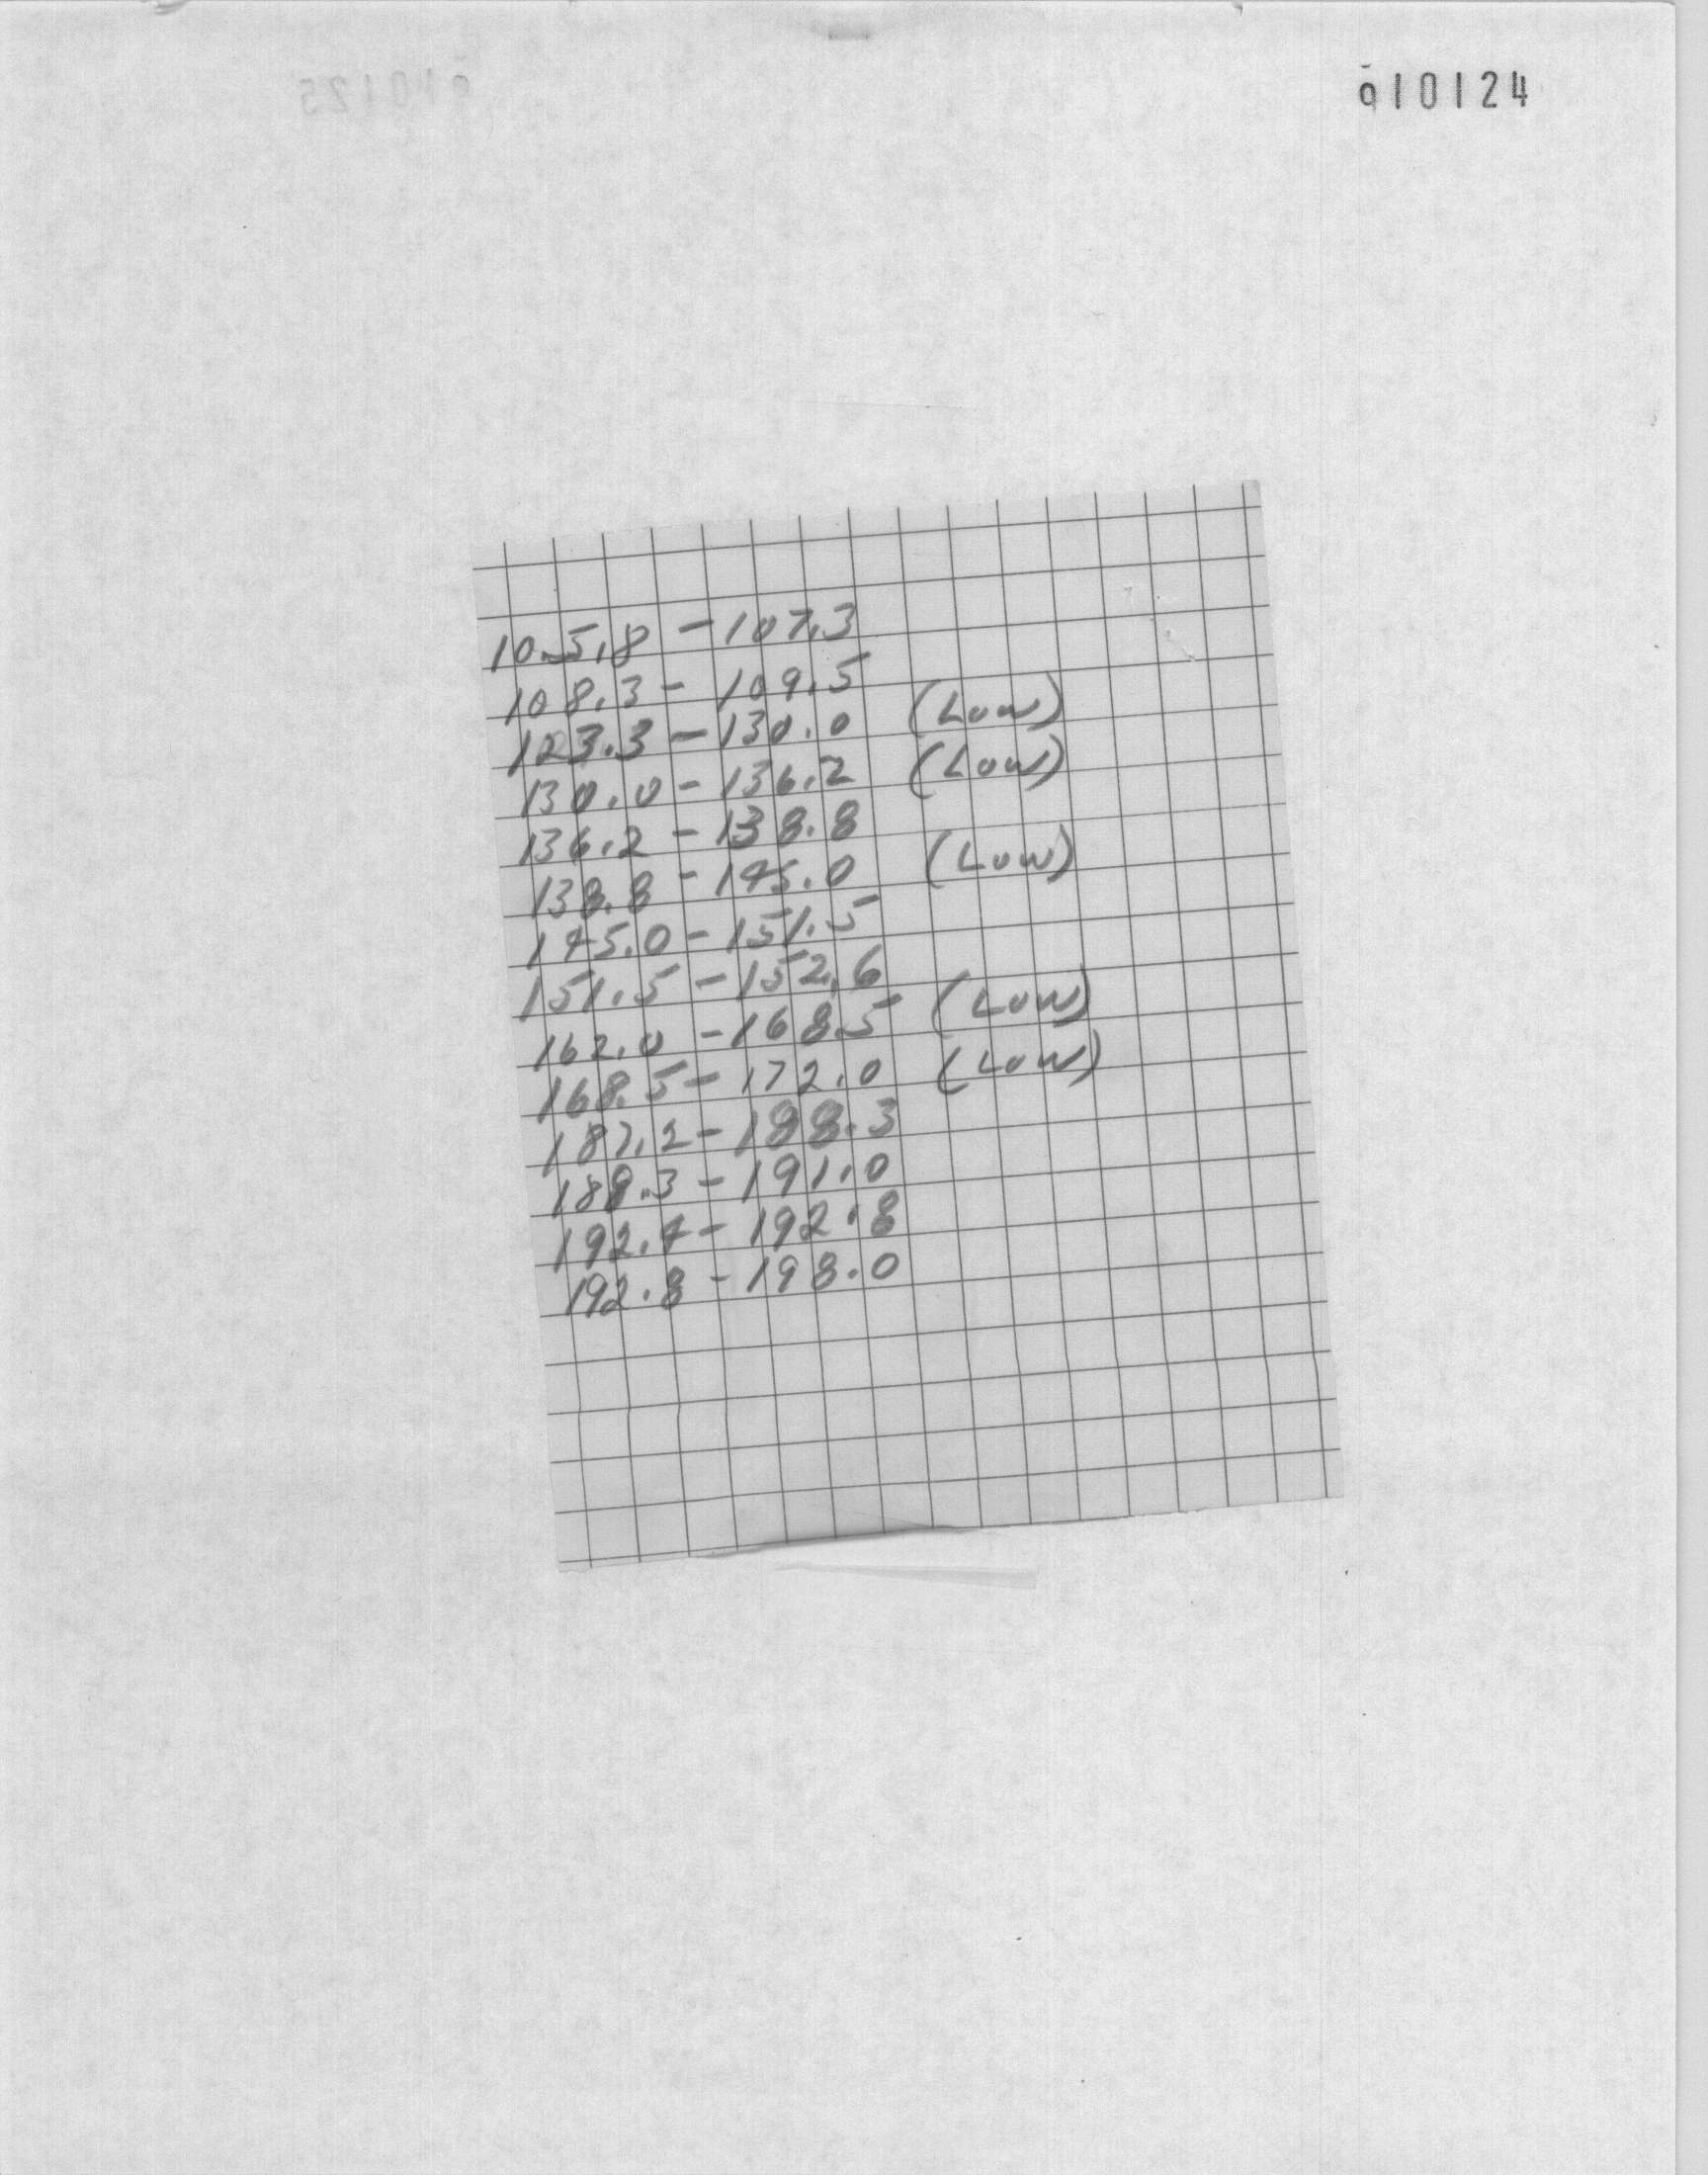 010124
105.8 - 107.3
108.3 - 109.5
123.3 - 130.0 (Low)
130.0 - 136.2 (Low)
136.2 - 138.8
138.8 - 145.0 (Low)
145.0 - 151.5
151.5 - 152.6
162.0 - 168.5 (Low)
168.5 - 172.0 (Low)
187.2 - 188.3
188.3 - 191.0
192.4 - 192.8
192.8 - 198.0